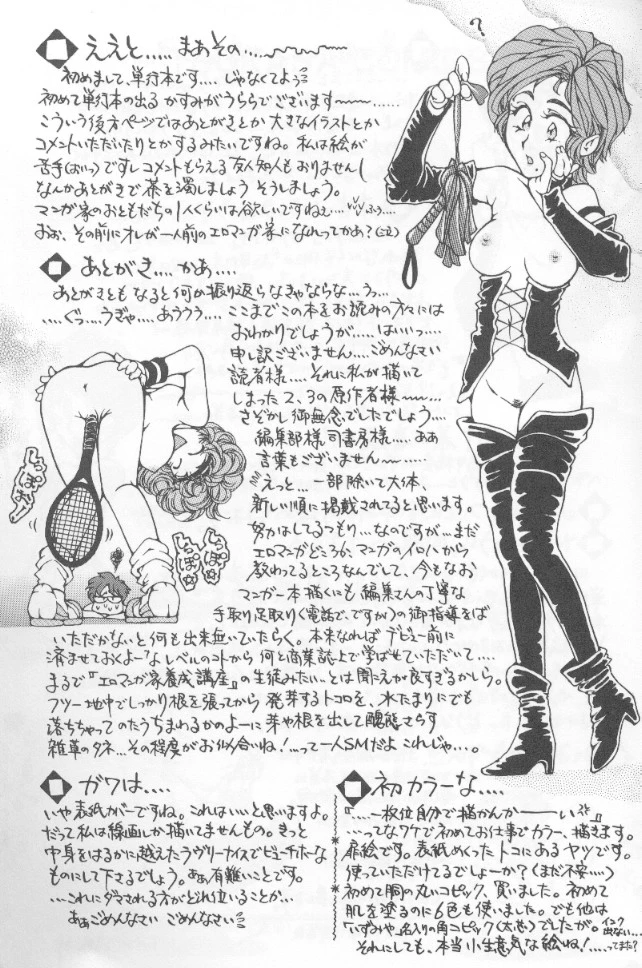 ?
ええと.....まぁその....
初めまして、単行本です....じゃなくてよぅ
初めて単行本の出るかすみがうららでございます〜〜〜......
こういう後方ページではあとがきとか大きなイラストとか
コメントいただいたりとかするみたいですね。私は絵が
苦手(おいっ)ですしコメントもらえる友人知人もおりませんし
なんかあとがきで茶を濁しましょう そうしましょう。
マンガ家のおともだちの1人くらいは欲しいですねぇ...ふぅ...
おぉ、その前にオレが一人前のエロマンガ家になれってかぁ?
あとがき....かぁ....
あとがきともなると何か振り返らなきゃならな...うっ...
....ぐっ...うぎゃ....あううう....ここまでこの本をお読みの方々には
おわかりでしょうが....はいぃっ....
申し訳ございません....ごめんなさい
読者様....それに私が描いて
しまった2、3の原作者様〜〜...
さぞかし御無念でしたでしょう....
編集部様、司書房様....ああ
言葉もございません〜〜......
えっと...一部除いて大体、
新しい順に掲載されてると思います。
努力はしてるつもり...なのですが...まだ
エロマンガどころか、マンガのイロハから
教わってるところなんでして、今もなお
マンガ一本描くにも編集さんの丁寧な
手取り足取り(電話で、ですが)の御指導をば
いただかないと何も出来無いていたらく。本来なればデビュー前に
済ませておくよーなレベルのコトから何と商業誌上で学ばせていただいて....
まるで『エロマンガ家養成講座』の生徒みたい...とは聞こえが良すぎるかしら。
フツー地中でしっかり根を張ってから発芽するトコロを、水たまりにでも
落ちちゃってのたうちまわるかのよーに芽や根を出して醜態さらす
雑草のタネ...その程度がお似合いね!...って一人SMだよこれじゃ...。
ガワは....
いや表紙カバーですね。これはいいと思いますよ。
だって私は線画しか描いてませんもの。きっと
中身をはるかに越えたラヴリーナイスでビューチホーな
ものにして下さるでしょう。あぁ有難いことです。
...これにダマされる方がどれ位いることか...
あぁごめんなさい ごめんなさい
初カラーな....
『....一枚位自分で描かんかーーーい』
...ってなワケで初めてお仕事でカラー、描きます。
扉絵です。表紙めくったトコにあるヤツです。
使っていただけてるでしょーか?(まだ不安....)
初めて胴の丸いコピック、買いました。初めて
肌を塗るのに6色も使いました。でも他は
「いずみや」名入りの角コピック(太芯)でしたが。インク出ない...
それにしても、本当小生意気な絵ね!....ってまた?